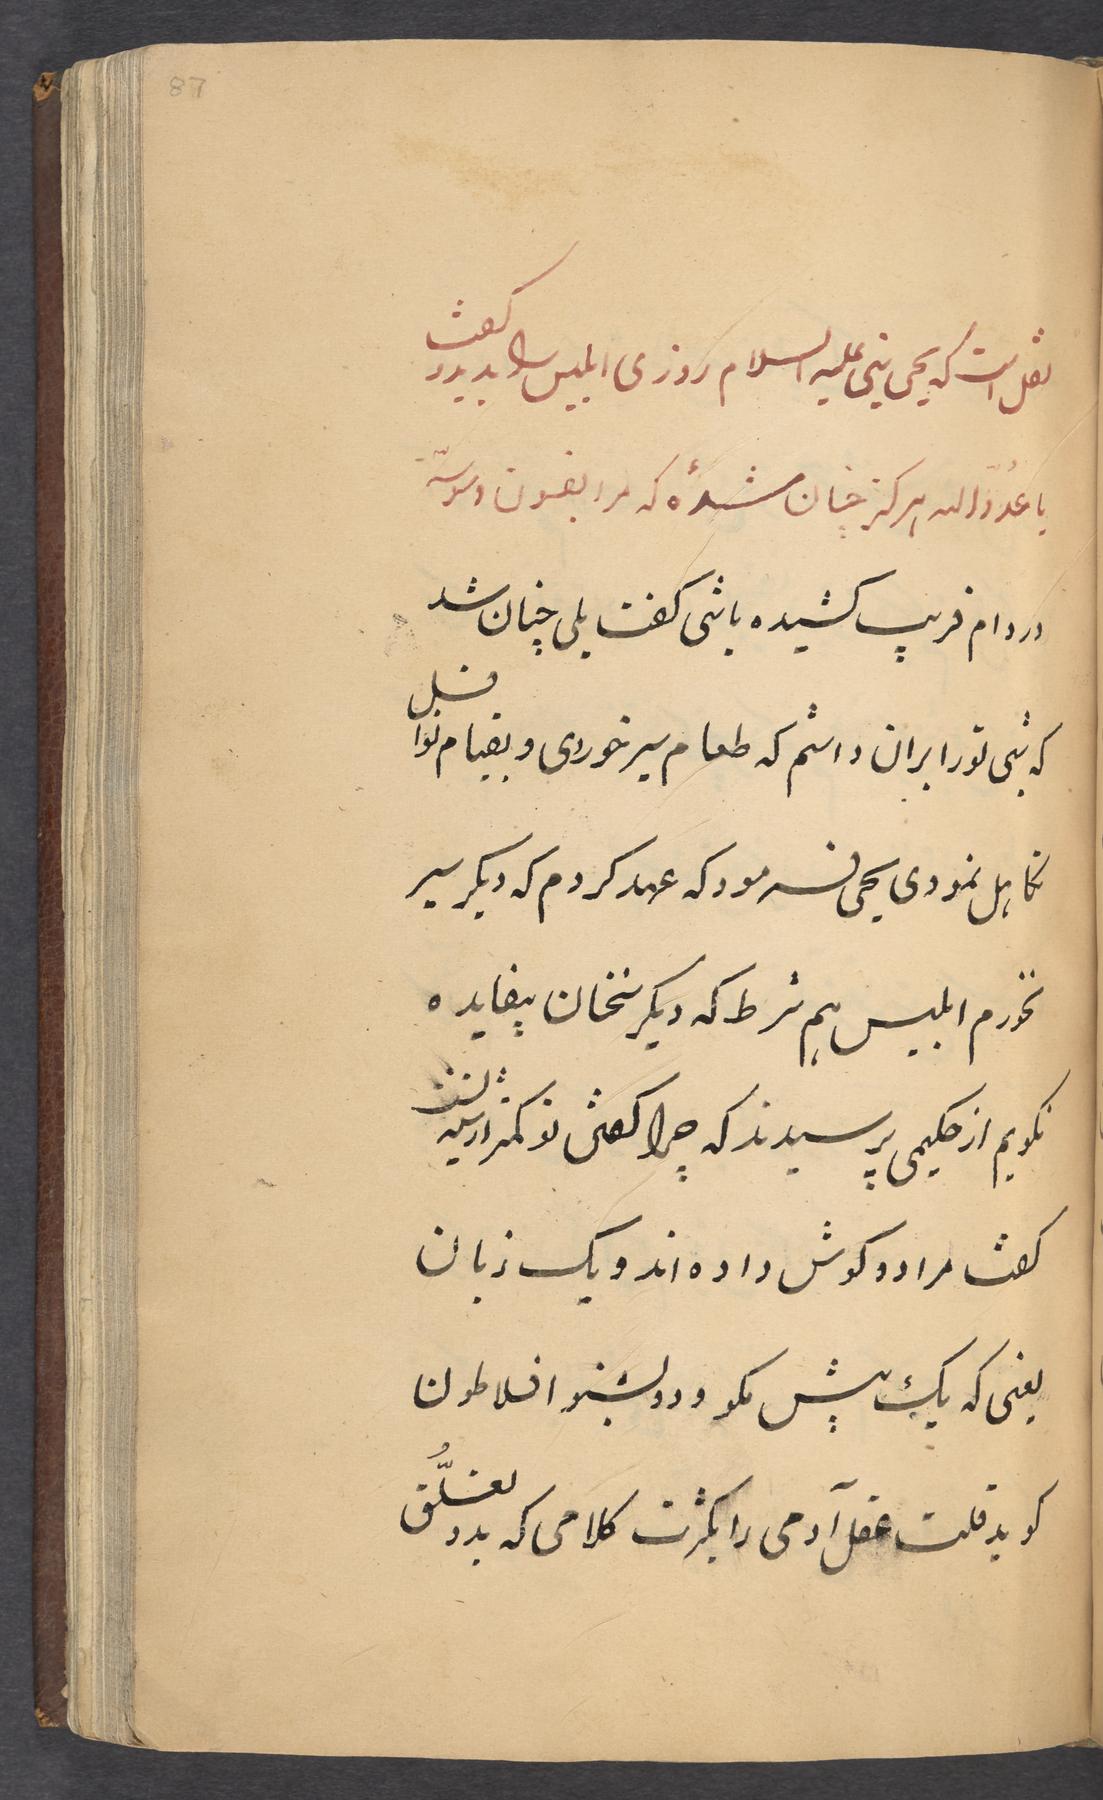 87
نقل است که یحیی نبی علیه السلام روزی ابلیس را بدید و گفت
یا عدوّ الله هرکز چنان شدهٔ که مرا بفسون وسوسهٔ
در دام فریب کشیده باشی کفت بلی چنان شد
که شبی تو را بران داشتم که طعام سیر خوردی و بقیام نوافل
تکاهل نمودی یحیی فرمود که عهد کردم که دیکر سیر
نخورم ابلیس هم شرط که دیکر سخنان بیفایده
نکویم از حکیمی پرسیدند که چرا کفتن تو کمتر از شنیدنست
کفت مرا دو کوش داده اند و یک زبان
یعنی که یک بیش مکو و دو بشنو افلاطون
کوید قلت عقل آدمی را بکثرت کلامی که بدو تعلّق